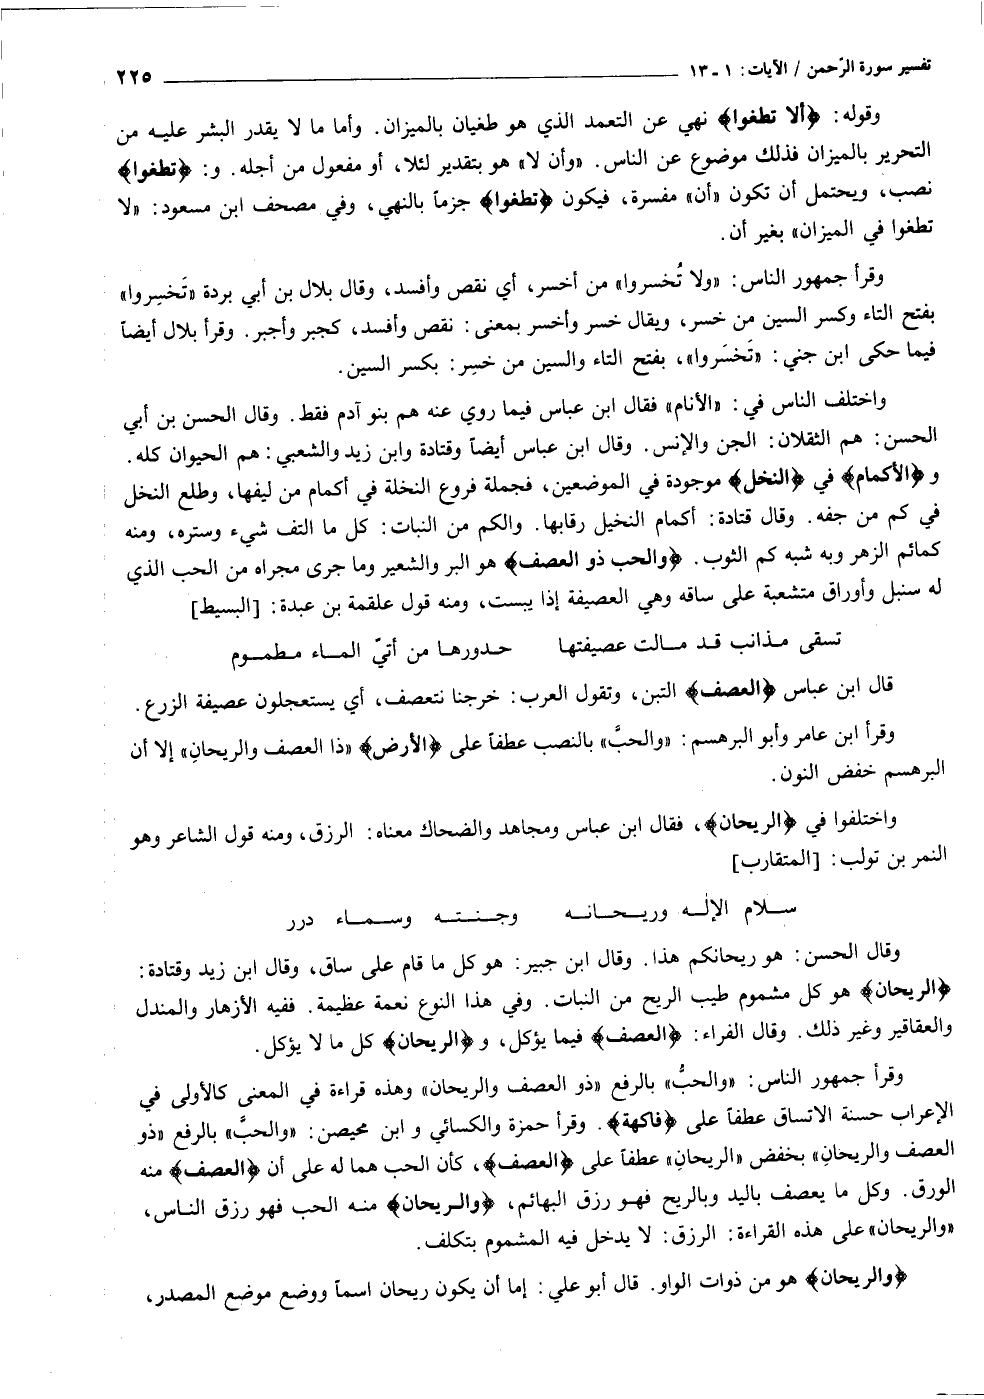 تفسير سورة الرّحمن / الآيات: ١ ـ ١٣ ٢٢٥
وقوله: ﴿ألا تطغوا﴾ نهي عن التعمد الذي هو طغيان بالميزان. وأما ما لا يقدر البشر عليه من
التحرير بالميزان فذلك موضوع عن الناس. «وأن لا» هو بتقدير لئلا، أو مفعول من أجله. و: ﴿تطغوا﴾
نصب، ويحتمل أن تكون «أن» مفسرة، فيكون ﴿تطغوا﴾ جزماً بالنهي، وفي مصحف ابن مسعود: «لا
تطغوا في الميزان» بغير أن.
وقرأ جمهور الناس: «ولا تُخسروا» من أخسر، أي نقص وأفسد، وقال بلال بن أبي بردة «تَخسِروا»
بفتح التاء وكسر السين من خسر، ويقال خسر وأخسر بمعنى: نقص وأفسد، كجبر وأجبر. وقرأ بلال أيضاً
فيما حكى ابن جني: «تَخسَروا»، بفتح التاء والسين من خسِر: بكسر السين.
واختلف الناس في: «الأنام» فقال ابن عباس فيما روي عنه هم بنو آدم فقط. وقال الحسن بن أبي
الحسن: هم الثقلان: الجن والإنس. وقال ابن عباس أيضاً وقتادة وابن زيد والشعبي: هم الحيوان كله.
و ﴿الأكمام﴾ في ﴿النخل﴾ موجودة في الموضعين، فجملة فروع النخلة في أكمام من ليفها، وطلع النخل
في كم من جفه. وقال قتادة: أكمام النخيل رقابها. والكم من النبات: كل ما التف شيء وستره، ومنه
كمائم الزهر وبه شبه كم الثوب. ﴿والحب ذو العصف﴾ هو البر والشعير وما جرى مجراه من الحب الذي
له سنبل وأوراق متشعبة على ساقه وهي العصيفة إذا يبست، ومنه قول علقمة بن عبدة: [البسيط]
تسقى مذانب قد مالت عصيفتها حدورها من أتيّ الماء مطموم
قال ابن عباس ﴿العصف﴾ التبن، وتقول العرب: خرجنا نتعصف، أي يستعجلون عصيفة الزرع.
وقرأ ابن عامر وأبو البرهسم: «والحبَّ» بالنصب عطفاً على ﴿الأرض﴾ «ذا العصف والريحانِ» إلا أن
البرهسم خفض النون.
واختلفوا في ﴿الريحان﴾، فقال ابن عباس ومجاهد والضحاك معناه: الرزق، ومنه قول الشاعر وهو
النمر بن تولب: [المتقارب]
سلام الإلٰه وريحانه وجنته وسماء درر
وقال الحسن: هو ريحانكم هذا. وقال ابن جبير: هو كل ما قام على ساق، وقال ابن زيد وقتادة:
﴿الريحان﴾ هو كل مشموم طيب الريح من النبات. وفي هذا النوع نعمة عظيمة. ففيه الأزهار والمندل
والعقاقير وغير ذلك. وقال الفراء: ﴿العصف﴾ فيما يؤكل، و ﴿الريحان﴾ كل ما لا يؤكل.
وقرأ جمهور الناس: «والحبُّ» بالرفع «ذو العصف والريحان» وهذه قراءة في المعنى كالأولى في
الإعراب حسنة الاتساق عطفاً على ﴿فاكهة﴾. وقرأ حمزة والكسائي و ابن محيصن: «والحبَّ» بالرفع «ذو
العصف والريحانِ» بخفض «الريحانِ» عطفاً على ﴿العصف﴾، كأن الحب هما له على أن ﴿العصف﴾ منه
الورق. وكل ما يعصف باليد وبالريح فهو رزق البهائم، ﴿والريحان﴾ منه الحب فهو رزق الناس،
«والريحان» على هذه القراءة: الرزق: لا يدخل فيه المشموم بتكلف.
﴿والريحان﴾ هو من ذوات الواو. قال أبو علي: إما أن يكون ريحان اسماً ووضع موضع المصدر،